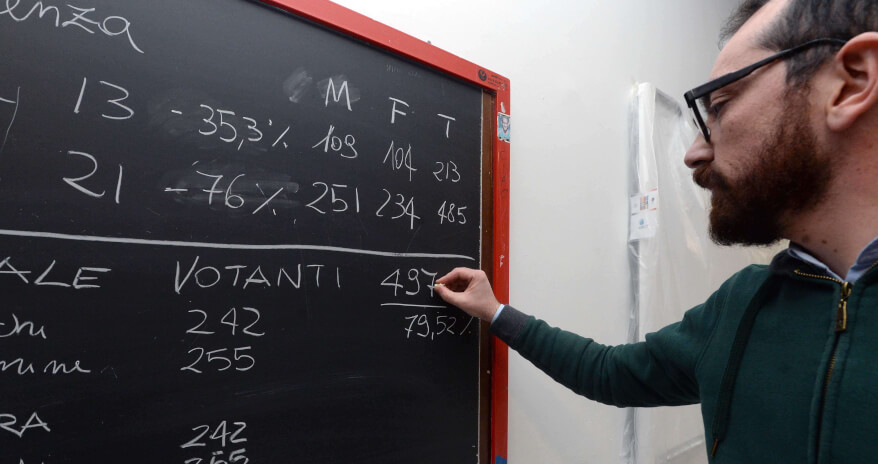 enza
M F T
13 -35,3% 109 104 213
21 -76% 251 234 485
ALE VOTANTI 497
79,52%
242
mine 255
RA 242
255